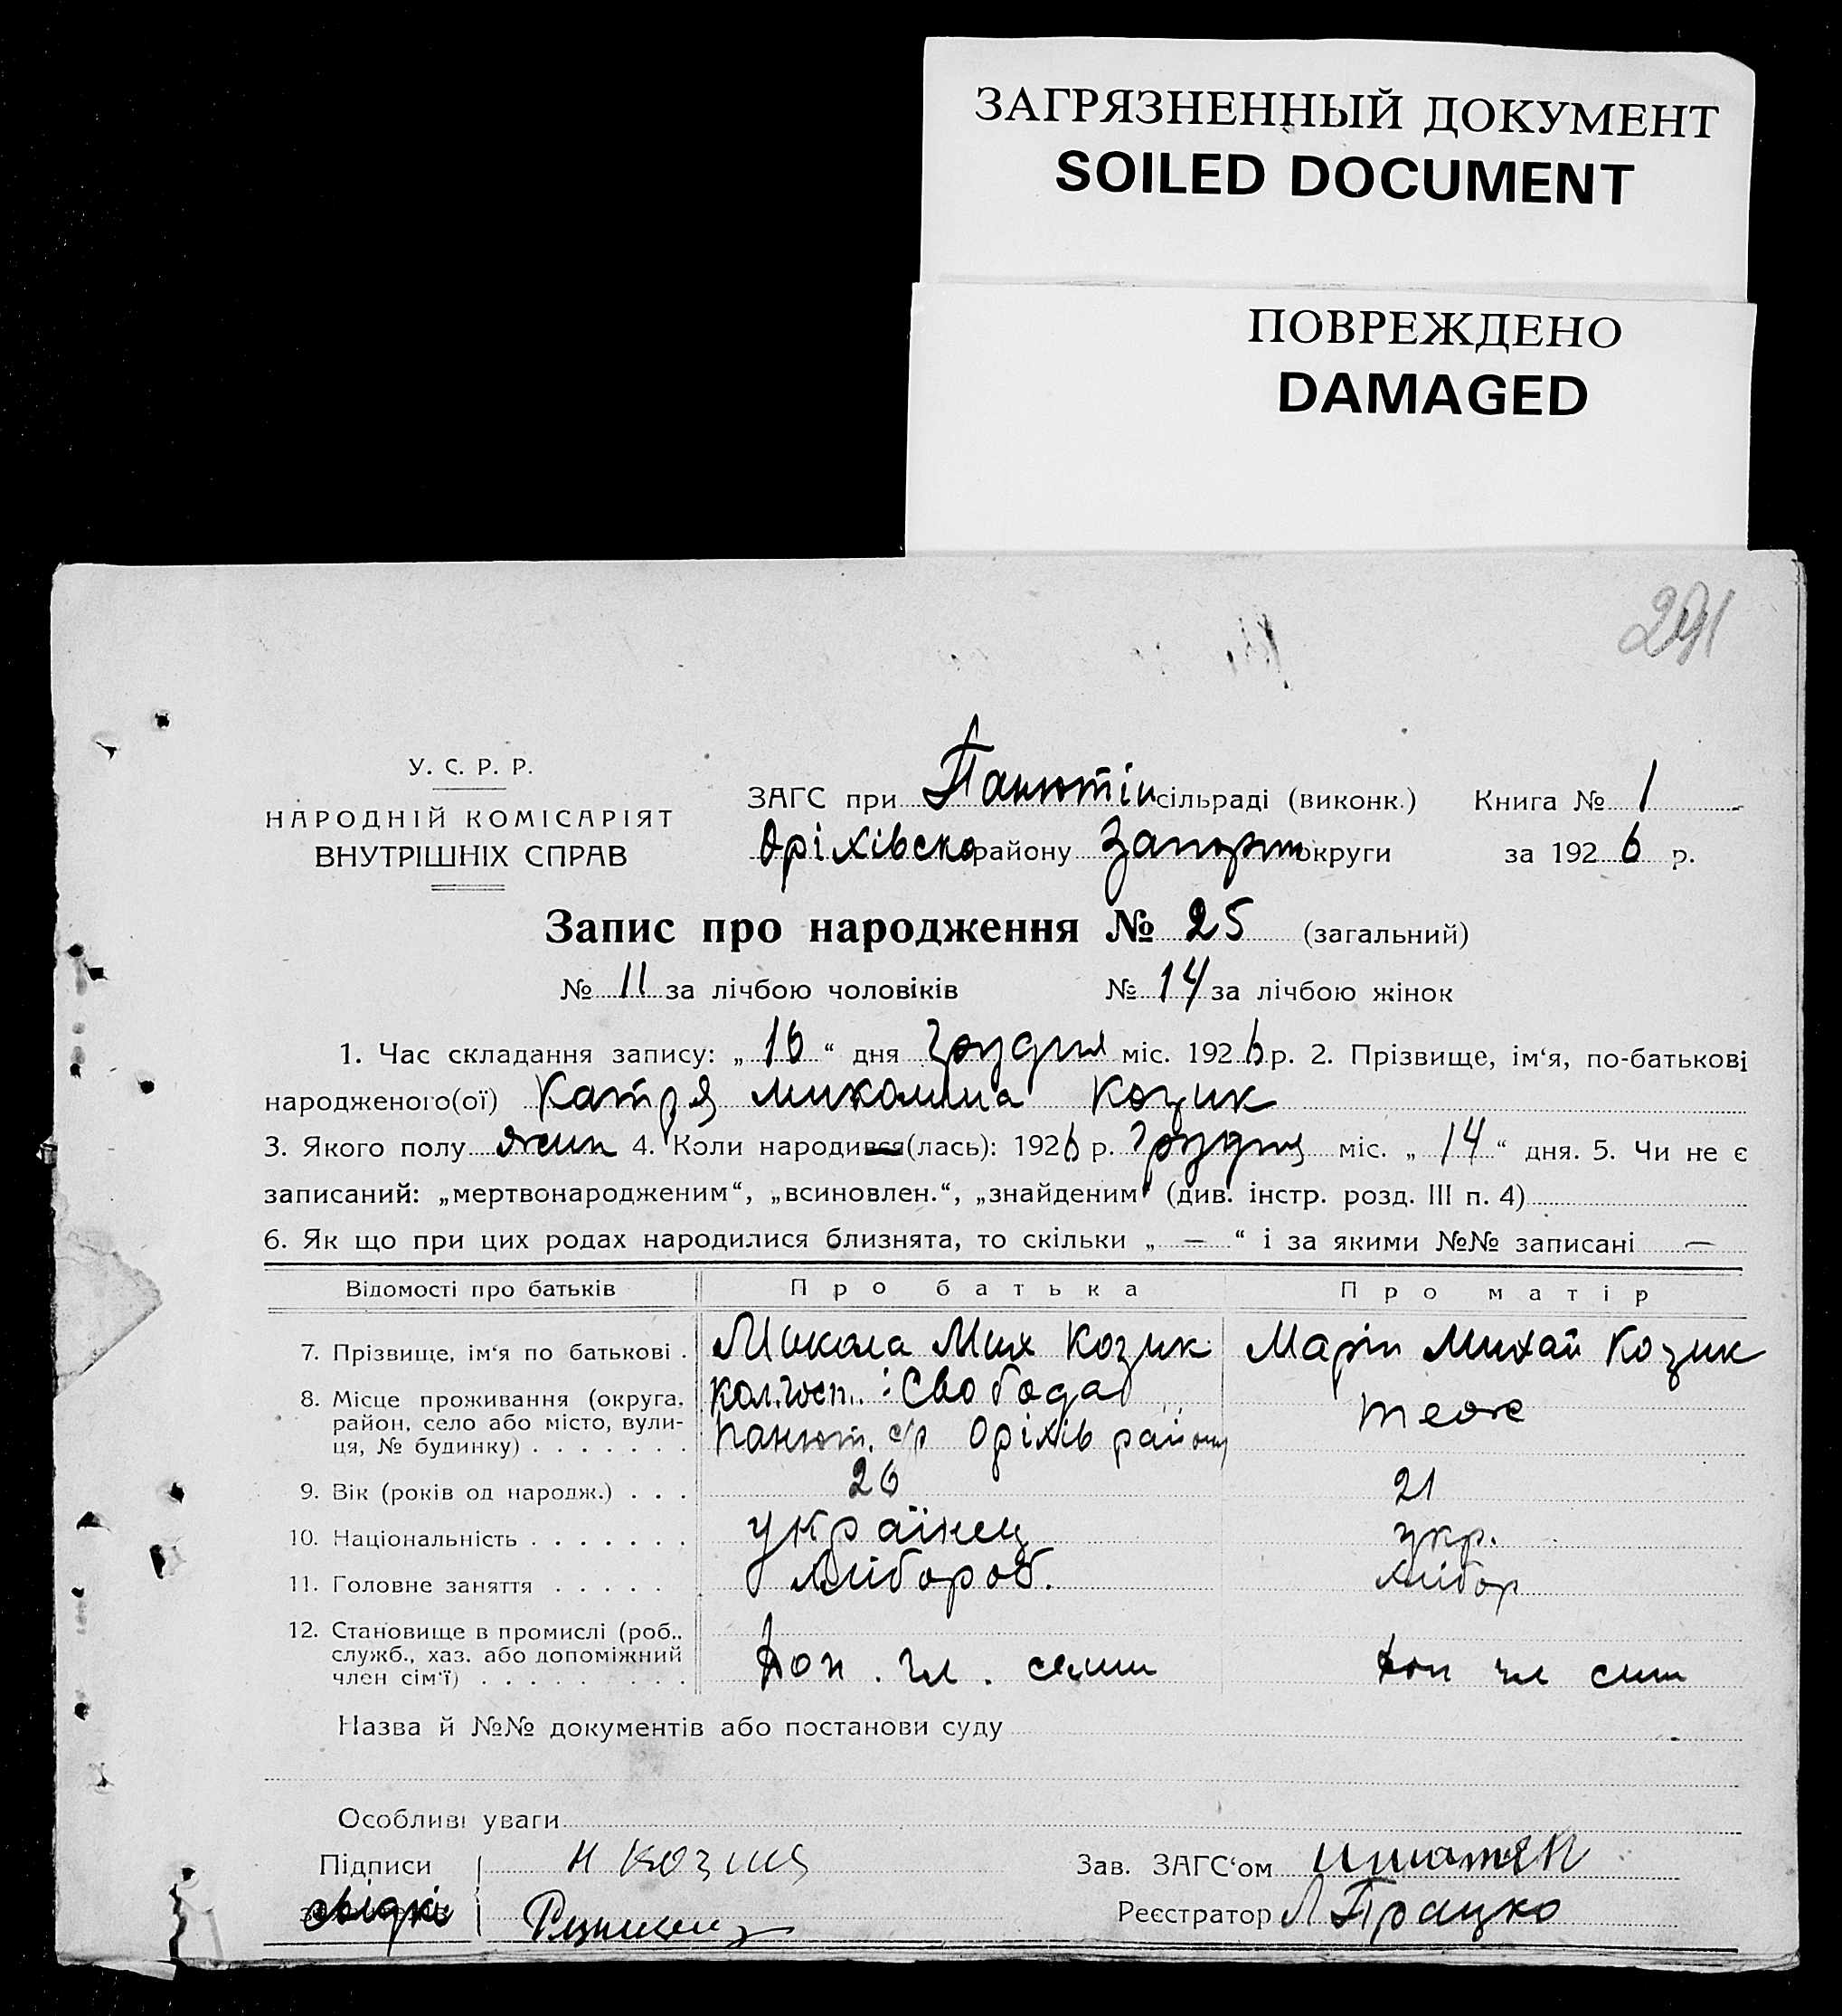 ЗАГРЯЗНЕННЫЙ ДОКУМЕНТ
SOILED DOCUMENT
ПОВРЕЖДЕНО
DAMAGED
291
У. С. Р. Р.
НАРОДНІЙ КОМІСАРІЯТ
ВНУТРІШНІХ СПРАВ
ЗАГС при Панютін сільраді (виконк.) Книга № 1
Оріхівско району Запорж округи за 1926 р.
Запис про народження № 25 (загальний)
№ 11 за лічбою чоловіків № 14 за лічбою жінок
1. Час складання запису: „16“ дня Грудня міс. 1926 р. 2. Прізвище, ім‘я, по-батькові
народженого(ої) Катря миколина Козик
3. Якого полу жин 4. Коли народився(лась): 1926 р. Грудня міс. „14“ дня. 5. Чи не є
записаний: „мертвонародженим“, „всиновлен.“, „знайденим“ (див. інстр. розд. III п. 4)
6. Як що при цих родах народилися близнята, то скільки „ — “ і за якими №№ записані —
Відомості про батьків Про батька Про матір
7. Прізвище, ім‘я по батькові . Микола Мих Козик Марія Михай Козик
8. Місце проживання (округа, район, село або місто, вули-ця, № будинку) . . . . . . . Кол.госп. Свобода Панют. с/р Оріхів району теже
9. Вік (років од народж.) . . . 26 21
10. Національність . . . . . . . українец укр.
11. Головне заняття . . . . . Хлібороб. хлібор
12. Становище в промислі (роб., служб., хаз. або допоміжний член сім‘ї) . . . . . . . . Доп. чл. семи доп чл сми
Назва й №№ документів або постанови суду
Особливі уваги
Підписи Н Козик Зав. ЗАГС‘ом
свідків Реєстратор Л Працко